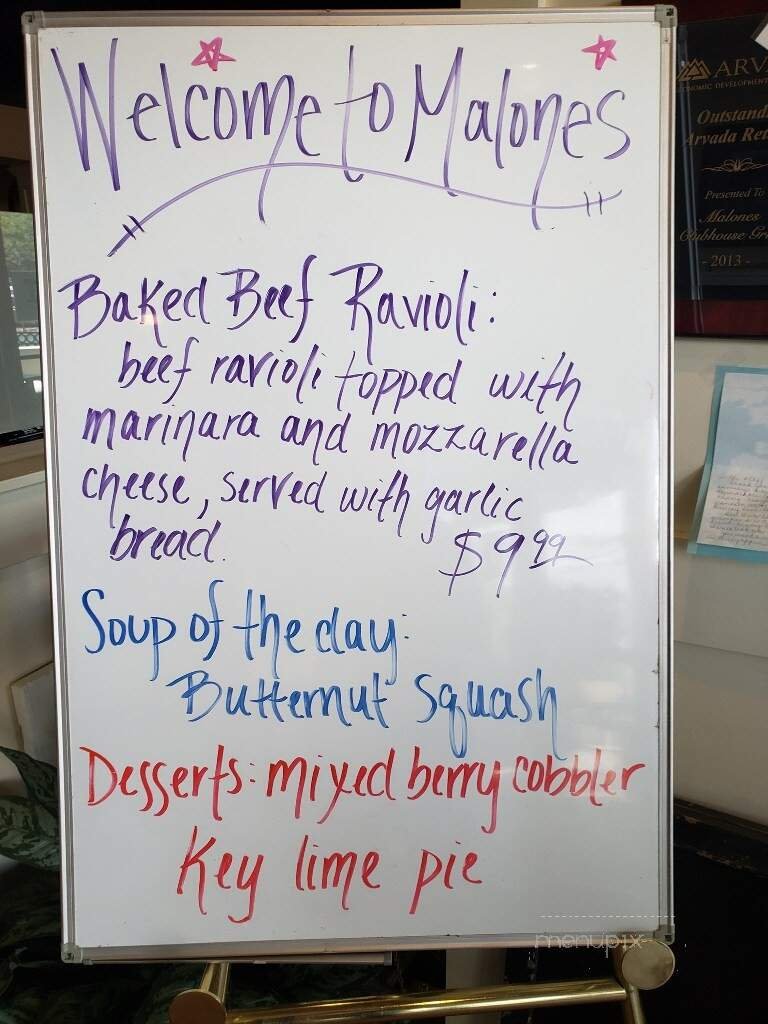 Welcome to Malones
Baked Beef Ravioli:
beef ravioli topped with
marinara and mozzarella
cheese, served with garlic
bread.
$9.99
Soup of the day:
Butternut Squash
Desserts: mixed berry cobbler
Key lime pie
ARVA
ECONOMIC DEVELOPMENT
Outstandi
Arvada Reta
Presented To
Malones
Clubhouse Gr
- 2013 -
menupix